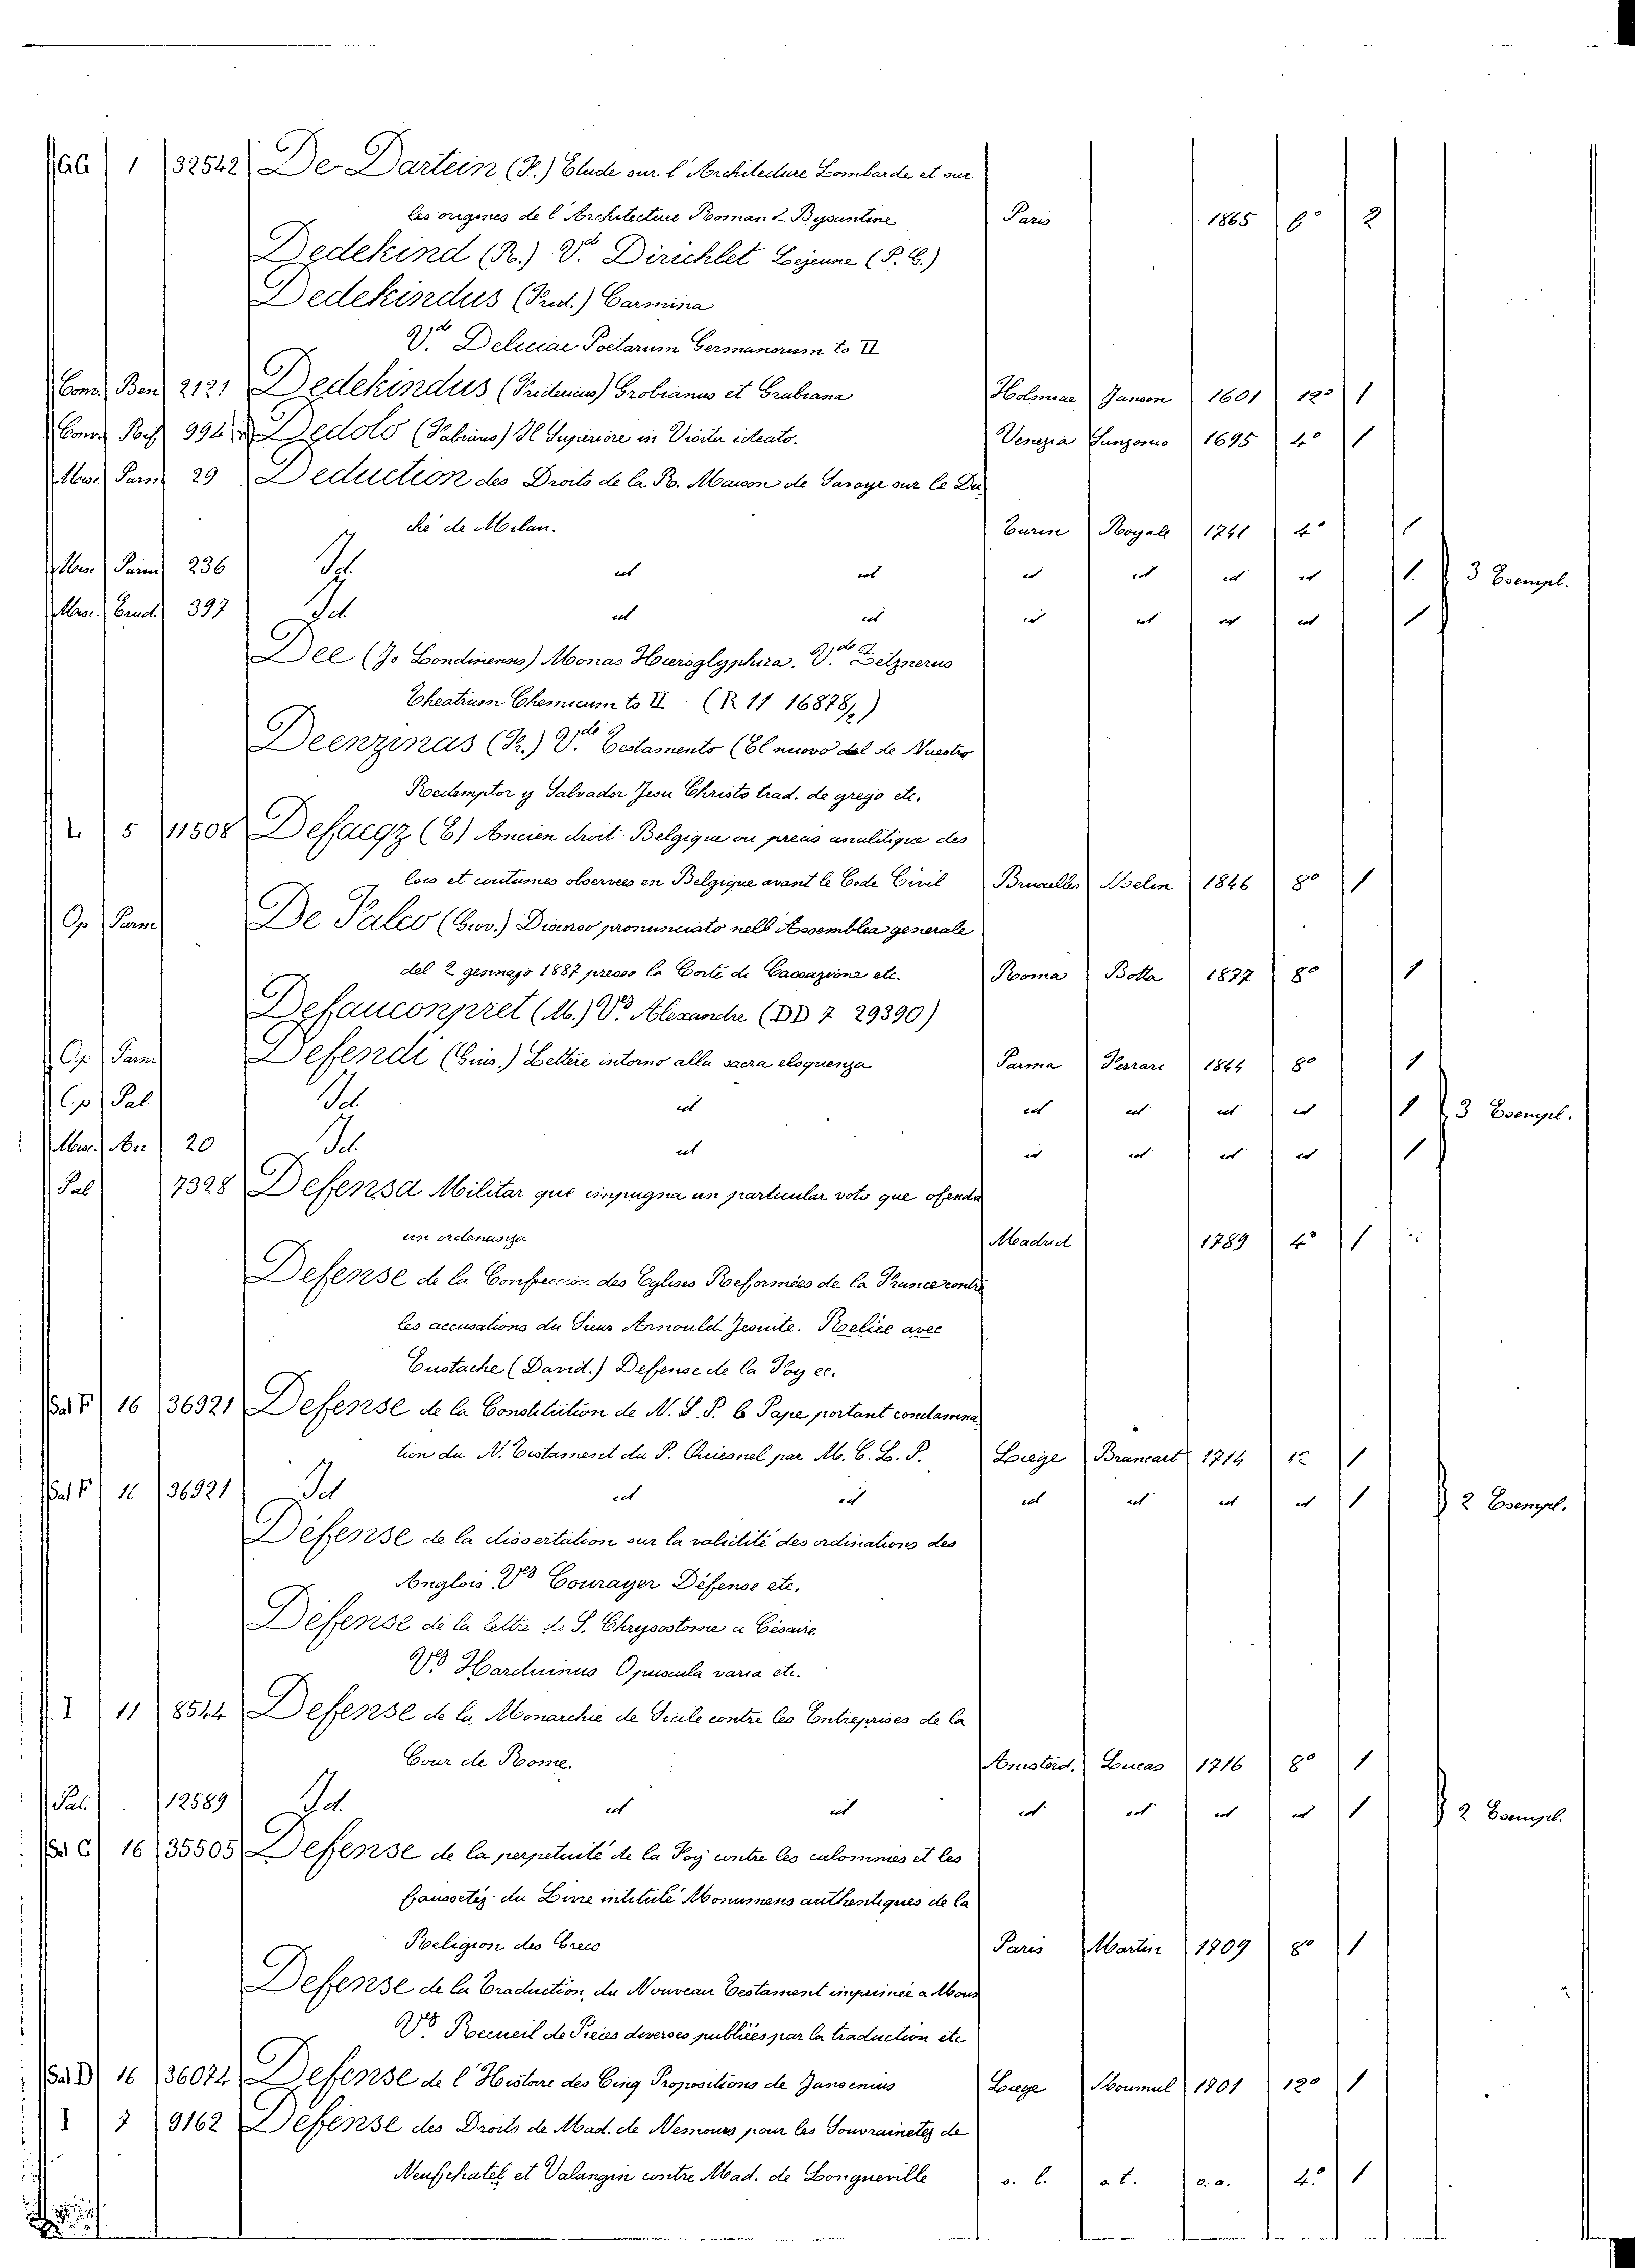 GG 1 32542 De Dartein (F.) Etude sur l'Architecture Lombarde et sur
les origines de l'Architecture Roman. Bysantine Paris 1865 2
Dedekind (R.) Vdi Dirichlet Lejeune (P. G.)
Dedekindus (Frid.) Carmina
Vdi Deliciae Poetarum Germanorum to II
Conv. Ben 2121 Dedekindus (Fridericus) Grobianus et Grabiana Holmiae Janson 1601 12° 1
Conv. 994 Dedolo (Fabiano) Il Superiore in Visita ideato. Venezia 1695 4° 1
Misc. Parm 29 Deduction des Droits de la R. Maison de Savoye sur le Du
ché de Milan. Turin Royale 1741 4° 1
Misc. Parm 236 Id. id id id id id id 1. 3 Esempl.
Misc. Erud. 397 Id. id id id id id id 1
Dee (Jo Londinensis) Monas Hieroglyphica. Vdo Zetznerus
Theatrum Chemicum to II (R 11 16878/2)
Deenzinas (Fr.) Vdi Testamento (El nuovo del de Nuestro
Redemptor y Salvador Jesu Christo trad. de grego etc.
L 5 11508 Defacqz (E) Ancien droit Belgique ou precis analitique des
lois et coutumes observees en Belgique avant le Code Civil. Bruxelles 1846 8° 1
Op Parm De Falco (Giov.) Discorso pronunciato nell'Assemblea generale
del 2 gennajo 1887 presso la Corte di Cassazione etc. Roma Botta 1877 8° 1
Defauconpret (M.) Vdi Alexandre (DD 7 29390)
Op. Parm Defendi (Gius.) Lettere intorno alla sacra eloquenza Parma Ferrari 1844 8° 1
Op Pal Id. id id id id id 1 3 Esempl.
Misc. 20 Id. id id id id id 1
Pal 7328 Defensa Militar que impugna un particular voto que ofende
un ordenanza Madrid 1789 4° 1
Defense de la Confession des Eglises Reformées de la France contre
les accusations du Sieur Arnould Jesuite. Reliée avec
Eustache (David.) Deffense de la Foy ec.
Sal F 16 36921 Defense de la Constitution de N. S. P. le Pape portant condamna
tion du N. Testament du P. Quiesnel par M. C. L. P. Liege Brancart 1714 12 1
Sal F 16 36921 Id id id id id id id 1 2 Esempl.
Défense de la dissertation sur la validité des ordinations des
Anglois Vdi Courayer Défense etc.
Défense de la lettre de S. Chrysostome a Césaire
Vdi Harduinus Opuscula varia etc.
I 11 8544 Defense de la Monarchie de Sicile contre les Entreprises de la
Cour de Rome. Amsterd. Lucas 1716 8° 1
Pal. 12589 Id. id id id id id id 1 2 Esempl.
Sal C 16 35505 Deffense de la perpetuité de la Foy contre les calomnies et les
faussetez du Livre intitulé Monumens authentiques de la
Religion des Grecs Paris Martin 1709 8° 1
Defense de la Traduction, du Nouveau Testament imprimée a Mons
Vdi Recueil de Pieces diverses publiées par la traduction etc
Sal D 16 36074 Defense de l'Histoire des Cinq Propositions de Jansenius Liege Moumul 1701 12° 1
I 7 9162 Deffense des Droits de Mad. de Nemours pour les Souvrainetez de
Neufchatel et Valangin contre Mad. de Longueville s. l. s. t. s. a. 4° 1